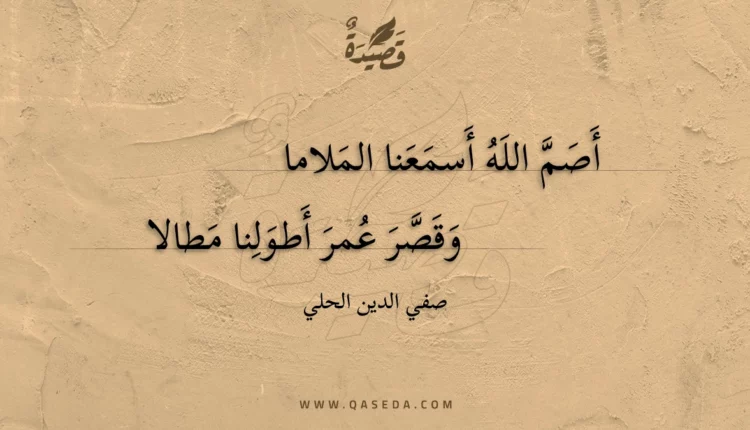 قَصِيْدَةٌ
أَصَمَّ اللَهُ أَسمَعَنا المَلاما
وَقَصَّرَ عُمرَ أَطوَلِنا مَطالا
صفي الدين الحلي
WWW.QASEDA.COM